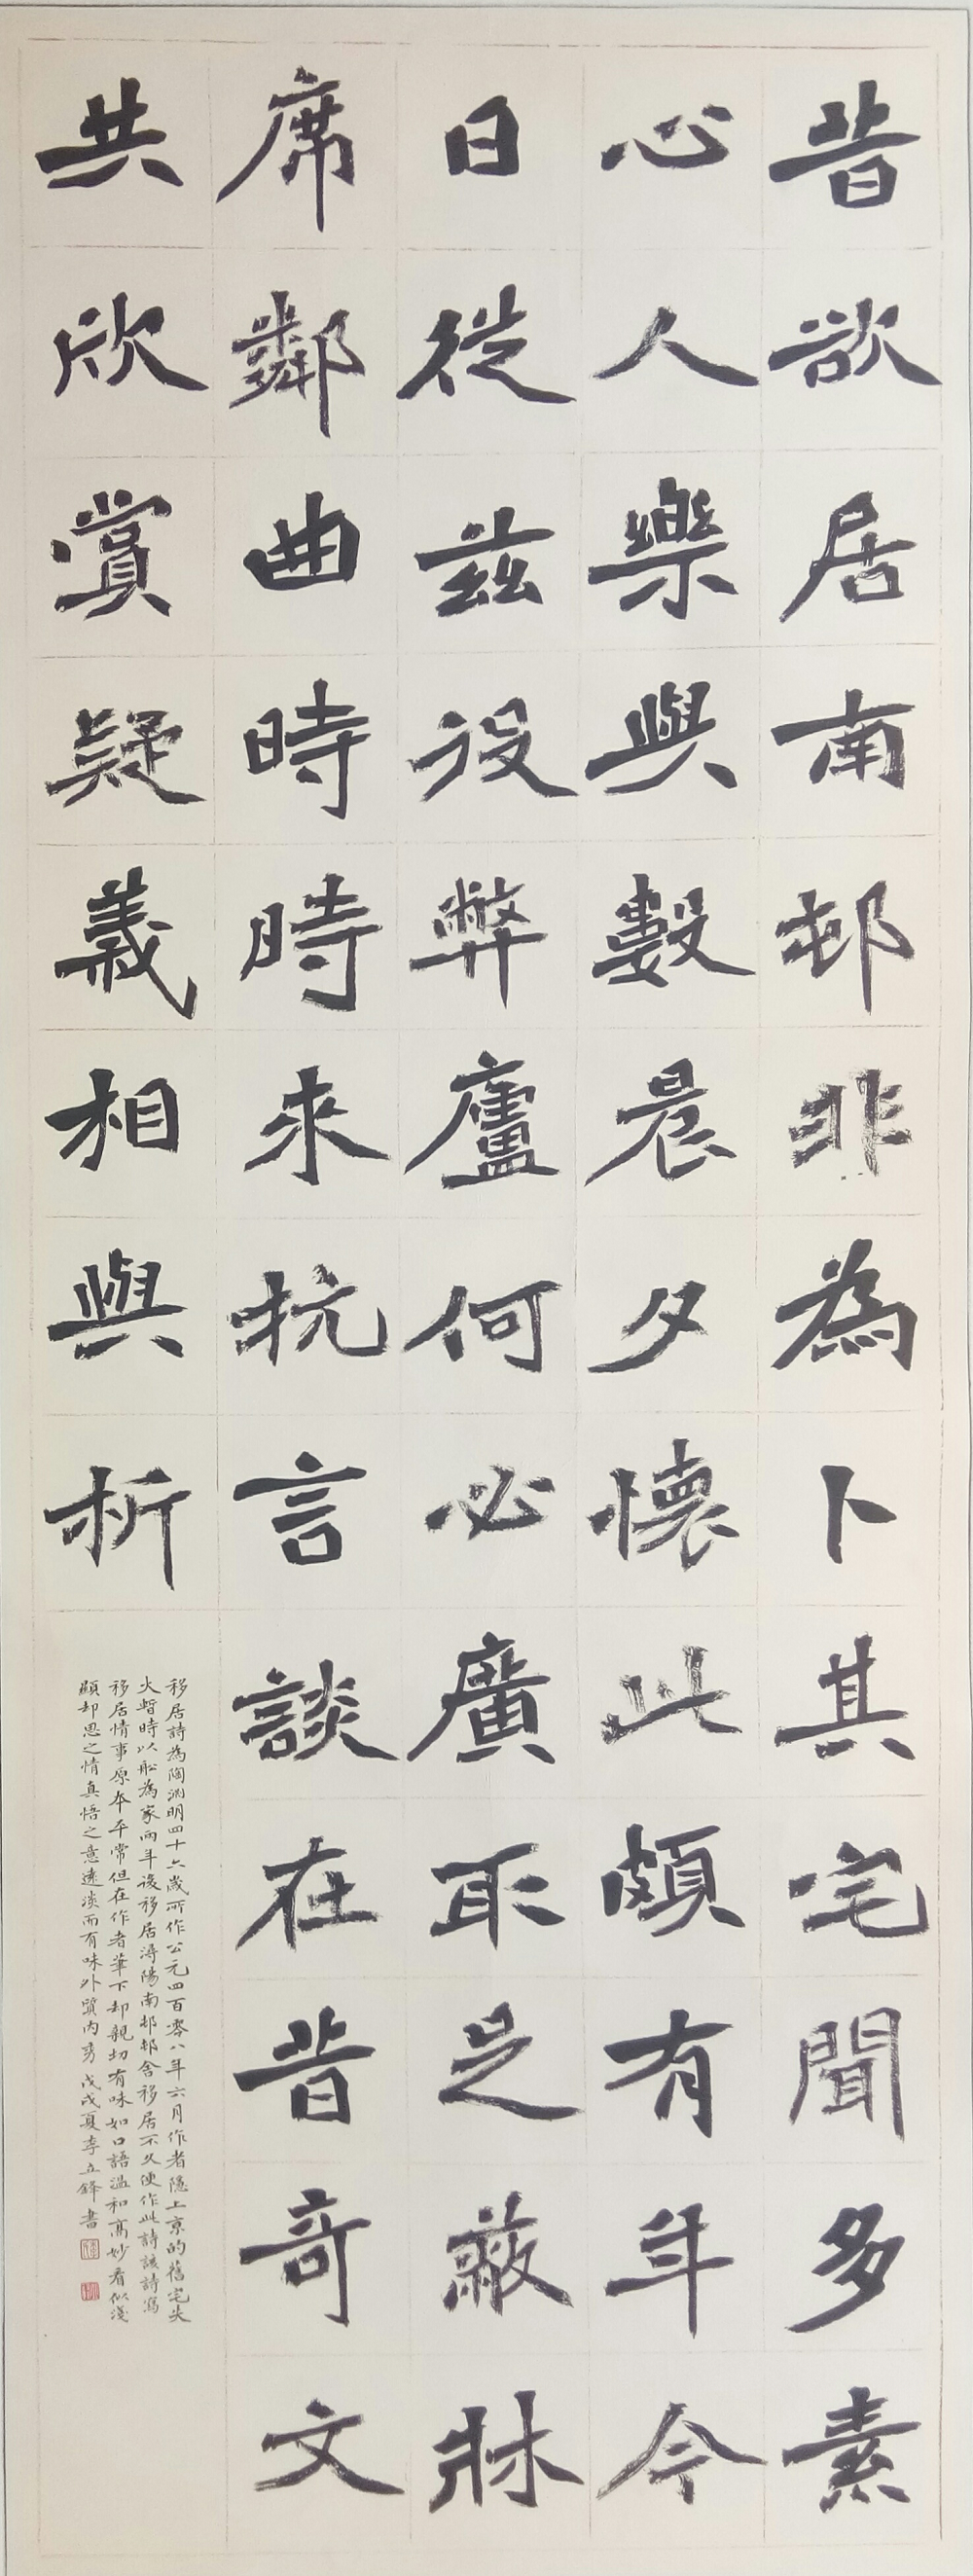 昔欲居南邨非為卜其宅聞多素
心人樂與數晨夕懷此頗有年今
日從茲役弊廬何必廣取足蔽牀
席鄰曲時時來抗言談在昔奇文
共欣賞疑義相與析
移居詩為陶淵明四十六歲所作公元四百零八年六月作者隱上京的舊宅失
火暫時以船為家兩年後移居潯陽南邨邨舍移居不久便作此詩該詩寫
移居情事原本平常但在作者筆下却親切有味如口語溫和高妙看似淺
顯却思之情真悟之意遠淡而有味外質內秀戊戌夏李立鋒書